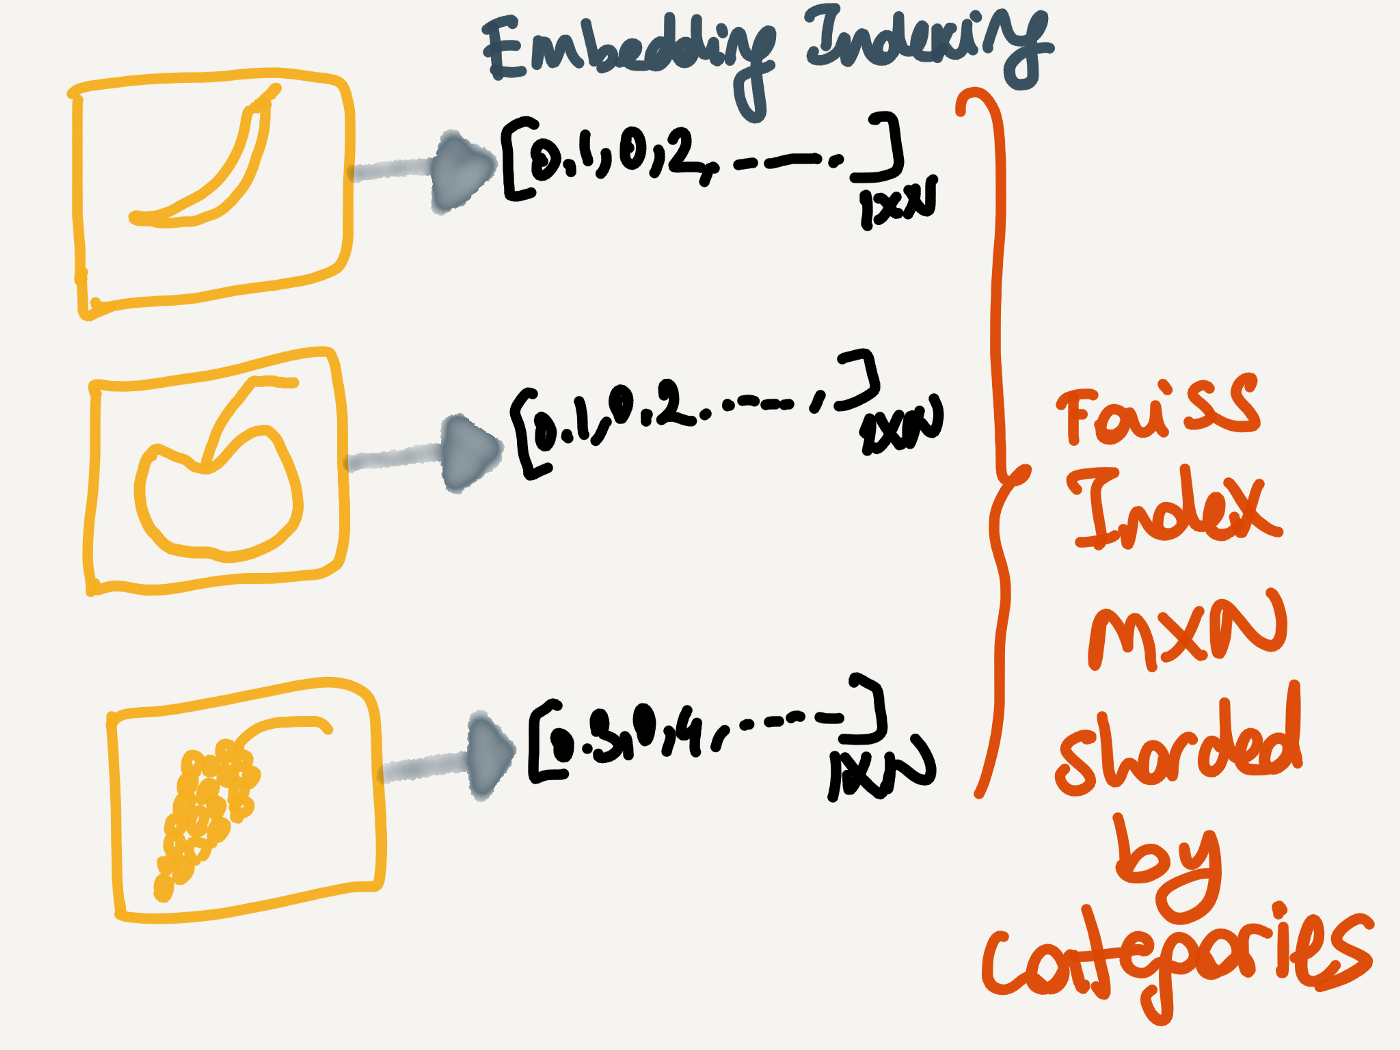 Embedding Indexing
[0.1,0,2,-----.]1XN
[0.1,0.2.----,]1XN
[0.3,0,4,-----]1XN
Faiss
Index
MXN
Sharded
by
Categories